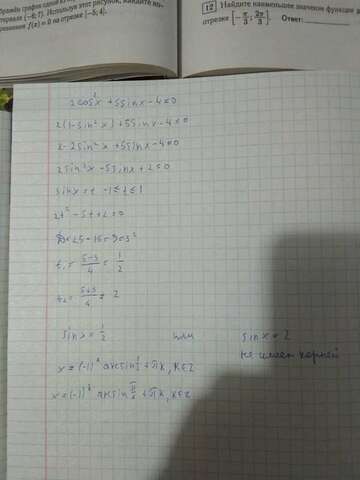 бражён график одной из
тервале (−6; 7). Используя этот рисунок, найдите
равнения f(x) = 0 на отрезке [−5; 4].
12 Найдите наименьшее значение функции
отрезке [−π/3; 2π/3]. Ответ:
2cos²x + 5sinx − 4 = 0
2(1 − sin²x) + 5sinx − 4 = 0
2 − 2sin²x + 5sinx − 4 = 0
2sin²x − 5sinx + 2 = 0
sinx = t −1 ≤ t ≤ 1
2t² − 5t + 2 = 0
D = 25 − 16 = 9 = 3²
t₁ = (5−3)/4 = 1/2
t₂ = (5+3)/4 = 2
sinx = 1/2 или sinx = 2
не имеет корней
x = (−1)ᵏ arcsin 1/2 + πk, k∈Z
x = (−1)ᵏ arcsin π/6 + πk, k∈Z